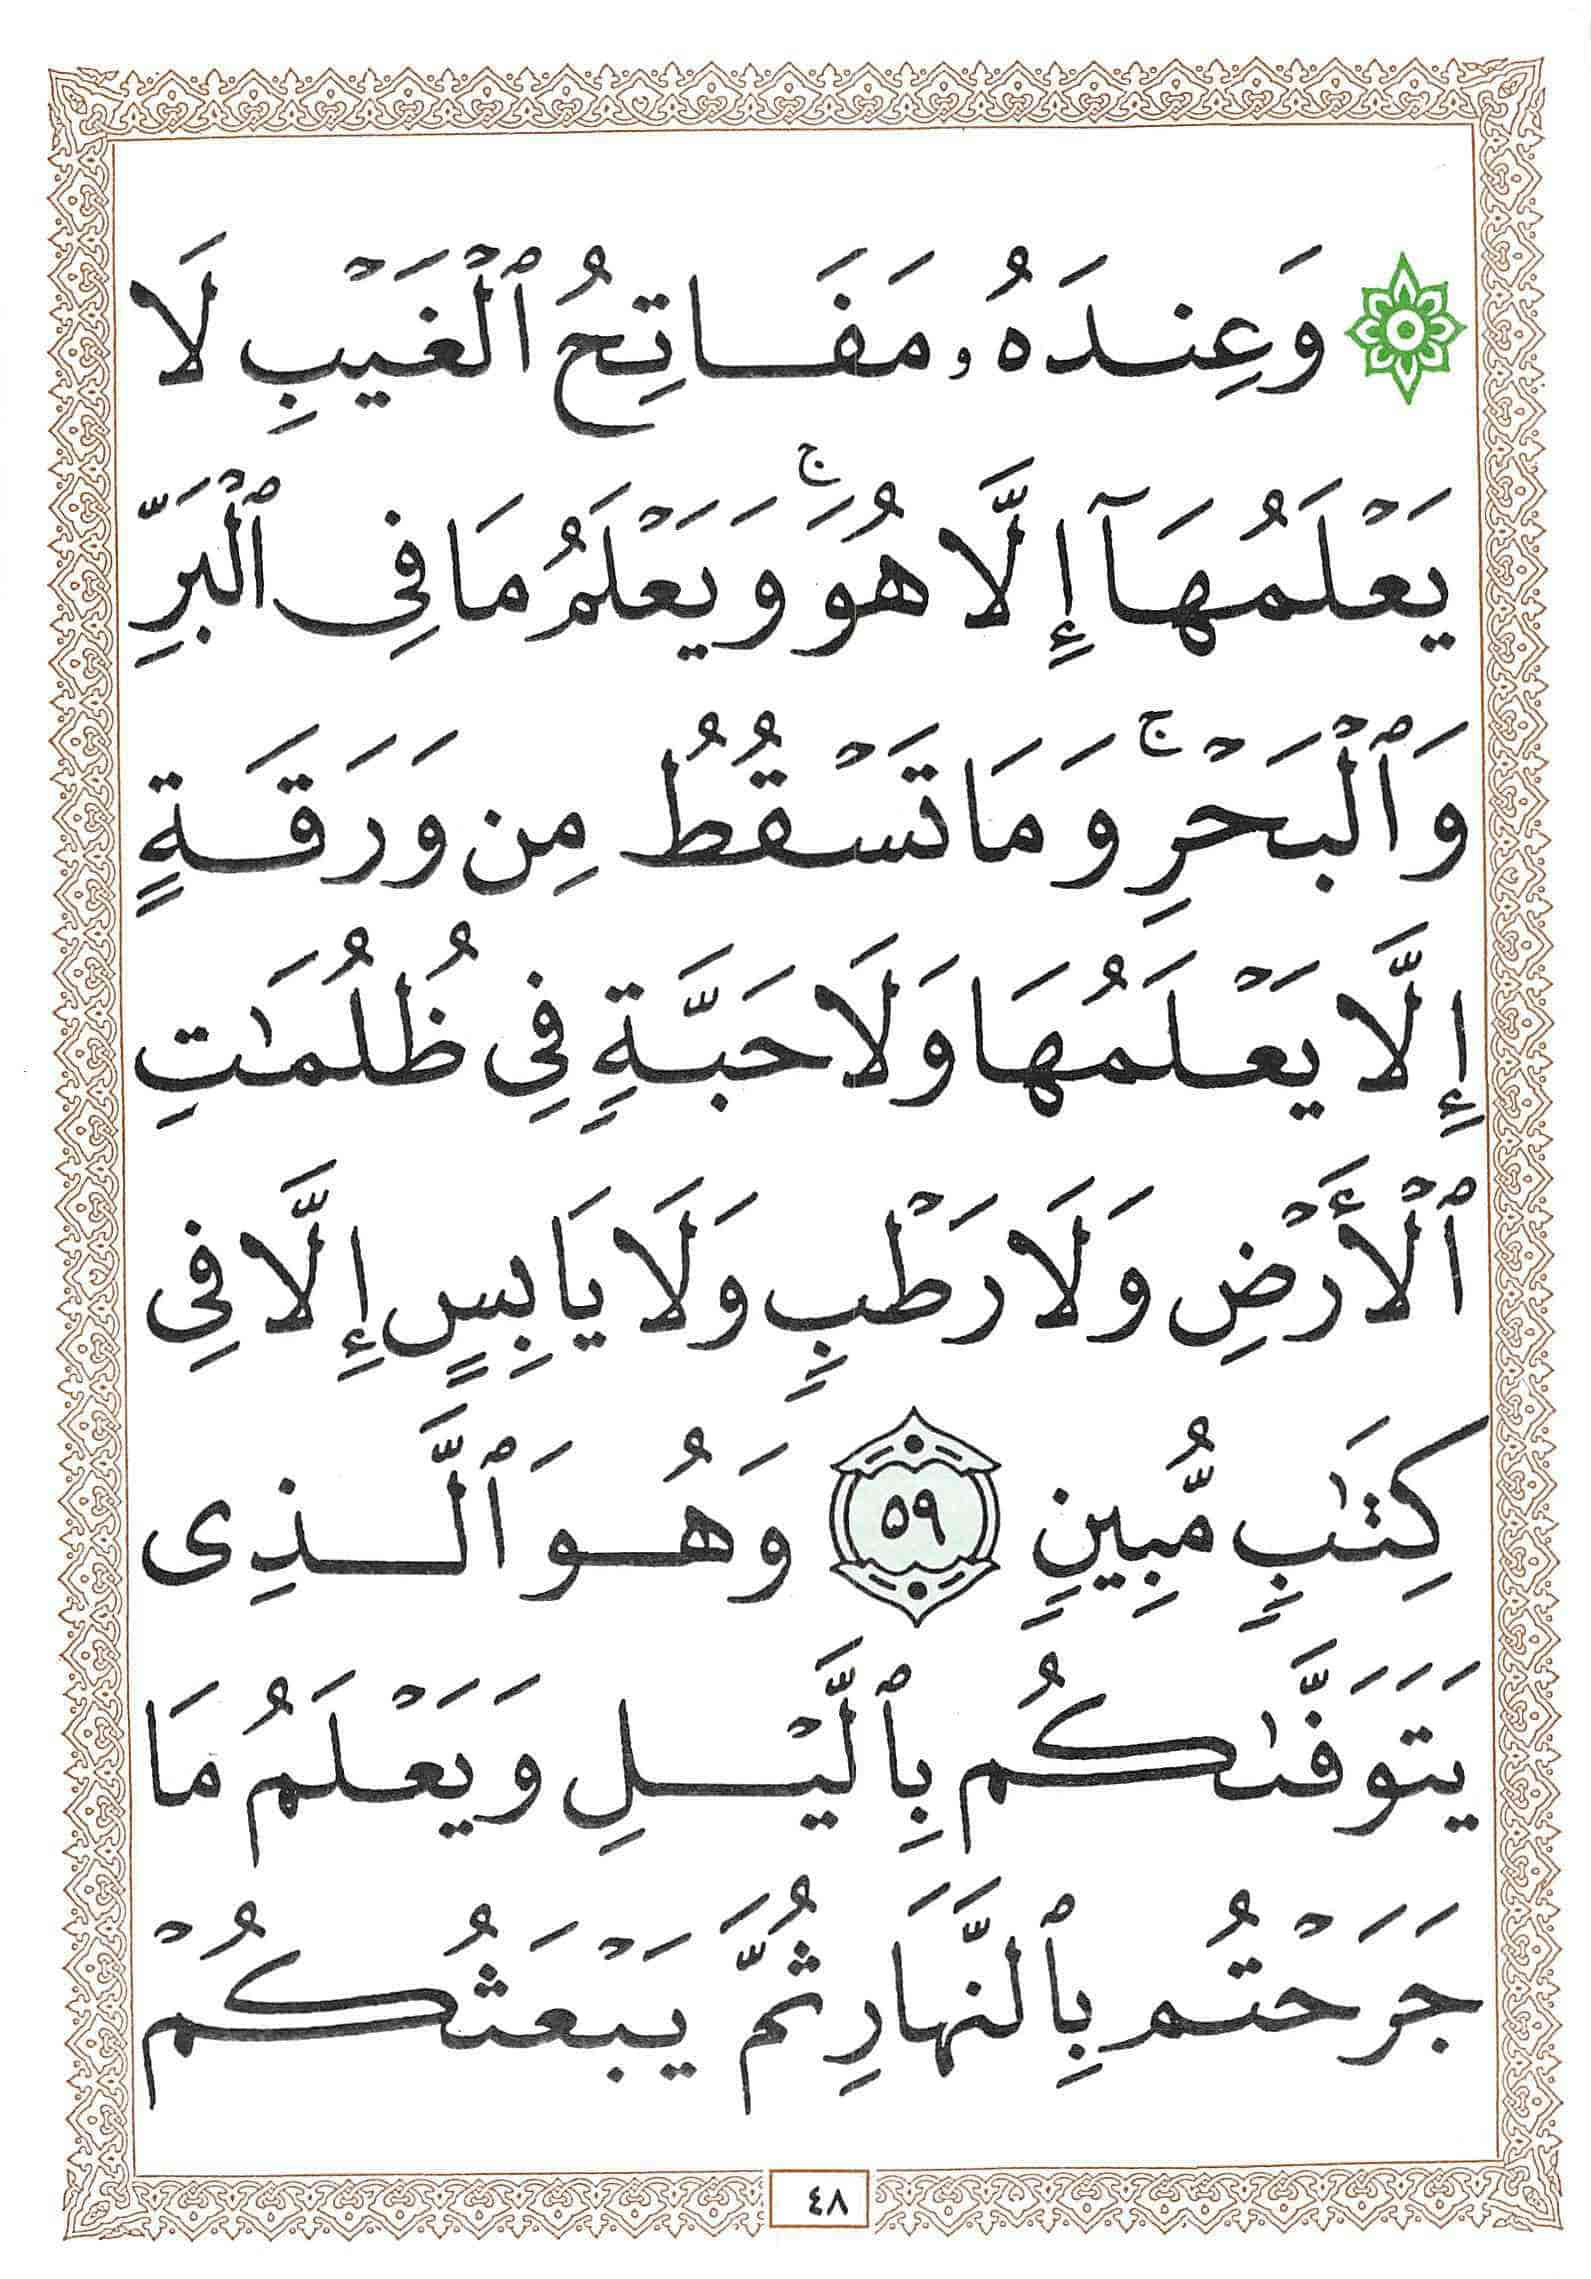 ۞ وَعِندَهُۥ مَفَاتِحُ ٱلْغَيْبِ لَا
يَعْلَمُهَآ إِلَّا هُوَ ۚ وَيَعْلَمُ مَا فِى ٱلْبَرِّ
وَٱلْبَحْرِ ۚ وَمَا تَسْقُطُ مِن وَرَقَةٍ
إِلَّا يَعْلَمُهَا وَلَا حَبَّةٍ فِى ظُلُمَٰتِ
ٱلْأَرْضِ وَلَا رَطْبٍ وَلَا يَابِسٍ إِلَّا فِى
كِتَٰبٍ مُّبِينٍ ٥٩ وَهُوَ ٱلَّذِى
يَتَوَفَّىٰكُم بِٱلَّيْلِ وَيَعْلَمُ مَا
جَرَحْتُم بِٱلنَّهَارِ ثُمَّ يَبْعَثُكُمْ
٤٨